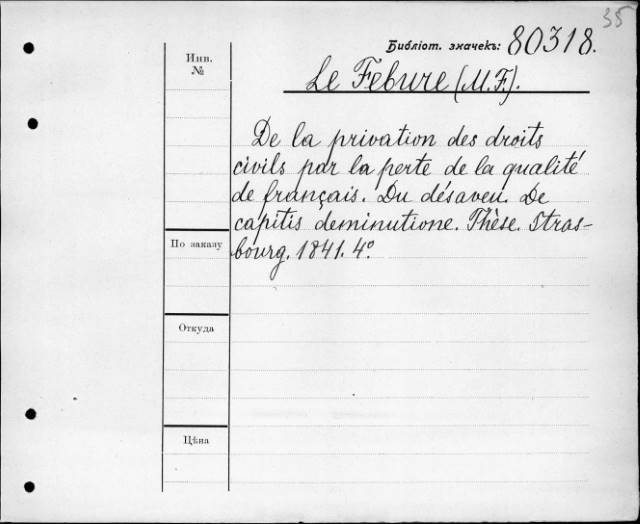 35
Библіот. значекъ: 80318.
Инв.
№
Le Febure (M.F.).
De la privation des droits
civils par la perte de la qualité
de français. Du désaveu. De
capitis deminutione. Thèse. Stras-
bourg. 1841. 4°.
По заказу
Откуда
Цѣна